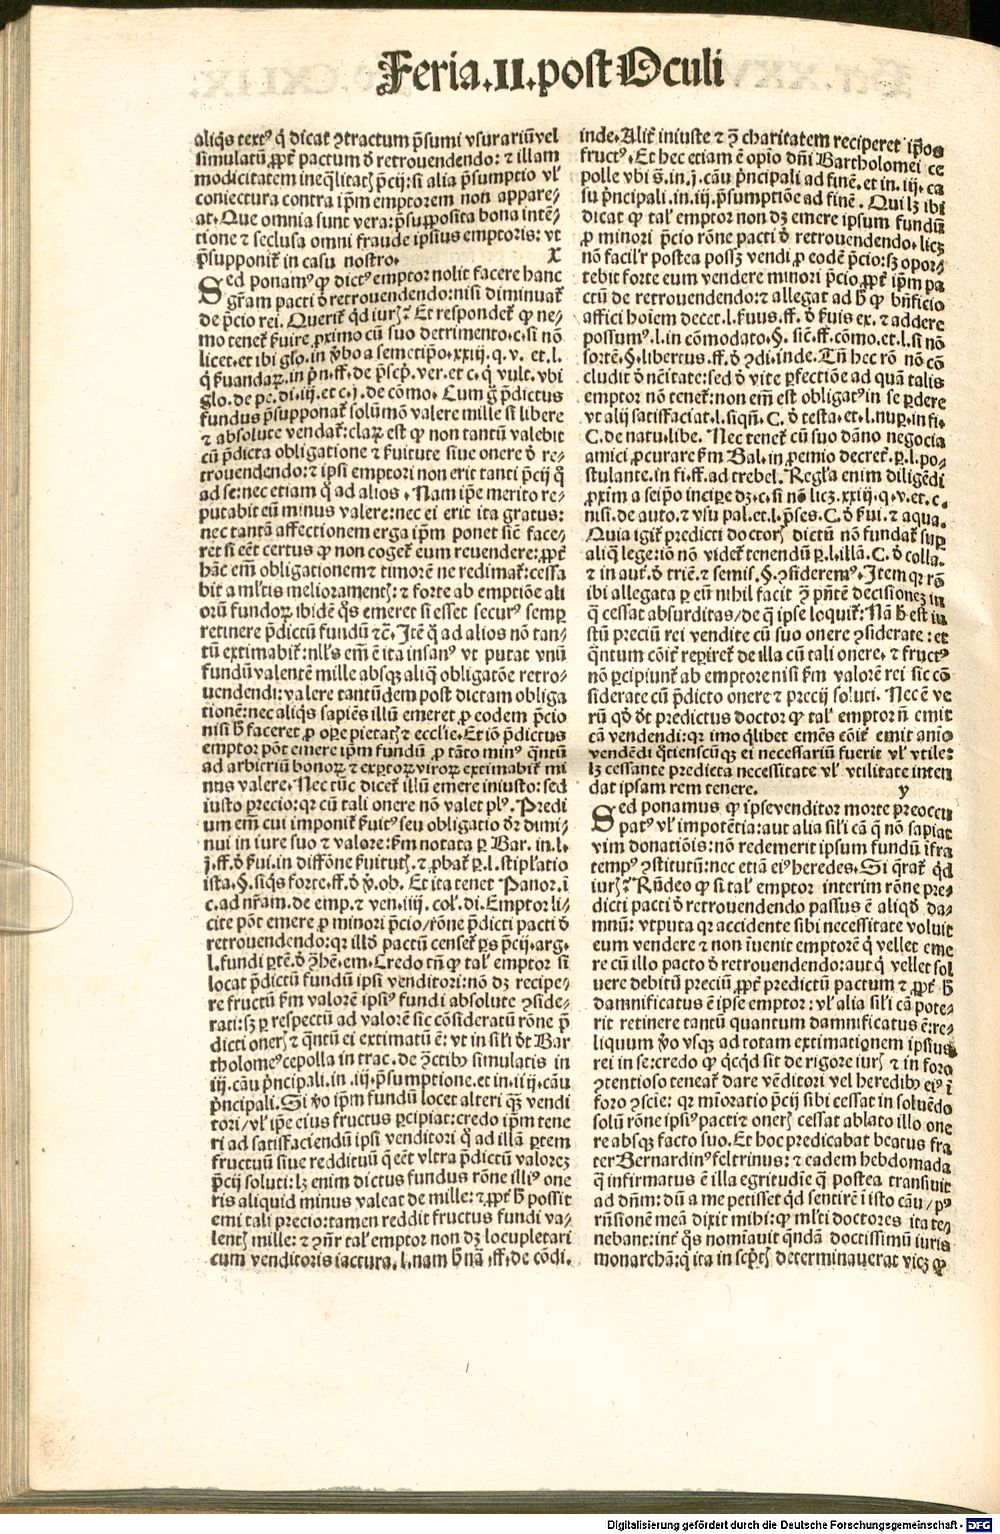 Feria.II.post Oculi
aliq̄s textꝰ q̇ dicat ꝯtractum p̄sumi vsurariū vel
simulatū ꝓpt̄ pactum d̄ retrouendendo: ⁊ illam
modicitatem ineq̄litatꝭ p̄cij: si alia p̄sumptio vl̓
coniectura contra ip̄m emptorem non appare⸗
at. Que omnia sunt vera: p̄suꝓposita bona intē⸗
tione ⁊ seclusa omni fraude ipsius emptoris: vt
p̄supponit̄ in casu nostro. X
Sed ponamꝰ ꝙ dictꝰ emptor nolit facere hanc
gr̄am pacti d̄ retrouendendo: nisi diminuat̄
de p̄cio rei. Querit̄ qd̓ iurꝭ? Et respondet̄ ꝙ ne⸗
mo tenet̄ ẜuire ꝓximo cū suo detrimento. c. si nō
licet. et ibi glo. in v̓bo a semetip̄o. xxiij. q. v. et. l.
q̇ ẜuandaꝝ. in p̄n. ff. de p̄scp̄. ver. et c. q̇ vult. vbi
glo. de pe. di. iij. et c. j. de cōmo. Cum g̊ p̄dictus
fundus p̄supponat̄ solūmō valere mille si libere
⁊ absolute vendat̄: claꝝ est ꝙ non tantū valebit
cū p̄dicta obligatione ⁊ ẜuitute siue onere d̄ re⸗
trouendendo: ⁊ ipsi emptori non erit tanti p̄cij q̊̄
ad se: nec etiam q̊̄ ad alios. Nam ip̄e merito re⸗
putabit eū minus valere: nec ei erit ita gratus:
nec tantā affectionem erga ip̄m ponet sic̄ face⸗
ret si eēt certus ꝙ non coget̄ eum reuendere: ꝓpt̄
hāc em̄ obligationem ⁊ timorē ne redimat̄: cessa
bit a ml̓tis melioramentꝭ: ⁊ forte ab emptiōe ali
orū fundoꝝ ibidē q̊s emeret si esset securꝰ semꝑ
retinere p̄dictū fundū ⁊c̄. Itē q̊̄ ad alios nō tan⸗
tū extimabit̄: nll̓s em̄ ē ita insanꝰ vt putat vnū
fundū valentē mille absqꝫ aliq̄ obligatōe retro⸗
uendendi: valere tantūdem post dictam obliga
tionē: nec aliq̇s sapiēs illū emeret ꝓ eodem p̄cio
nisi h̓ faceret ꝓ oꝑe pietatꝭ ⁊ eccl̓ie. Et iō p̄dictus
emptor pōt emere ip̄m fundū ꝓ tāto minꝰ q̄ntū
ad arbitriū bonoꝝ ⁊ exꝑtoꝝ viroꝝ extimabit̄ mi
nus valere. Nec tūc dicet̄ illū emere iniusto: sed
iusto precio: qꝛ cū tali onere nō valet plꝰ. Predi
um em̄ cui imponit̄ ẜuitꝰ seu obligatio dr̄ dimi⸗
nui in iure suo ⁊ valore: ẜm notata ꝑ Bar. in. l.
j. ff. d̄ ẜui. in diffōne ẜuitutꝭ. ⁊ ꝓbat̄ ꝑ. l. stipl̓atio
ista. §. siq̇s forte. ff. d̄ v̓. ob. Et ita tenet Panor. ī
c. ad nr̄am. de emp. ⁊ ven. iiij. col̓. di. Emptor li⸗
cite pōt emere ꝓ minori p̄cio/ rōne p̄dicti pacti d̄
retrouendendo: qꝛ illd̓ pactū censet̄ ꝑs p̄cij. arg.
l. fundi ꝑtē. d̄ ꝯ̄hē. em. Credo tn̄ ꝙ talꝭ emptor si
locat p̄dictū fundū ipsi venditori: nō dꝫ recipe⸗
re fructū ẜm valorē ipsiꝰ fundi absolute ꝯside⸗
rati: sꝫ ꝑ respectū ad valorē sic cōsideratū rōne p̄
dicti onerꝭ ⁊ q̄ntū ei extimatū ē: vt in sil̓i dt̄ Bar
tholomeꝰ cepolla in trac. de ꝯctibꝰ simulatis in
iij. cāu p̄ncipali. in .iij. p̄sumptione. et in. iiij. cāu
p̄ncipali. Si v̓o ip̄m fundū locet alteri q̄ꝫ vendi
tori/ vl̓ ip̄e eius fructus ꝑcipiat: credo ip̄m tene
ri ad satisfaciendū ipsi venditori q̊̄ ad illā ꝑtem
fructuū siue reddituū q̄ eēt vltra p̄dictū valorēꝫ
p̄cij soluti: lꝫ enim dictus fundus rōne illiꝰ one
ris aliquid minus valeat de mille: ⁊ ꝓpt̄ h̓ possit
emi tali precio: tamen reddit fructus fundi va⸗
lentꝭ mille: ⁊ ꝯn̄r talꝭ emptor non dꝫ locupletari
cum venditoris iactura. l. nam h̓ nā. ff. de cōdi.
inde. Alit̄ iniuste ⁊ ꝯ̄ charitatem reciperet ip̄os
fructꝰ. Et hec etiam ē opio dn̄i Bartholomei ce
polle vbi s̄. in. j. cāu p̄ncipali ad finē. et in. iij. ca
su p̄ncipali. in. iij. p̄sumptiōe ad finē. Qui lꝫ ibi
dicat ꝙ talꝭ emptor non dꝫ emere ipsum fundū
ꝓ minori p̄cio rōne pacti d̄ retrouendendo. licꝫ
nō facil̓r postea possꝫ vendi ꝓ eodē p̄cio: sꝫ opor⸗
tebit forte eum vendere minori p̄cio ꝓpt̄ ip̄m pa
ctū de retrouendendo: ⁊ allegat ad h̓ ꝙ bn̄ficio
affici hoīem decet. l. ẜuus. ff. d̄ ẜuis ex. ⁊ addere
possumꝰ. l. in cōmodato. §. sic̄. ff. cōmo. et. l. si nō
sortē. §. libertus. ff. d̄ ꝯdi. inde. Tn̄ hec rō nō cō
cludit d̄ nēitate: sed d̄ vite ꝑfectiōe ad quā talis
emptor nō tenet̄: non em̄ est obligatꝰ in se ꝑdere
vt alij satisfaciat. l. siqn̄. C. d̄ testa. et. l. nuꝑ. in fi.
C. de natu. libe. Nec tenet̄ cū suo dāno negocia
amici ꝓcurare ẜm Bal. in ꝓemio decret̄. ꝑ. l. po⸗
stulante. in fi. ff. ad trebel. Regl̓a enim diligēdi
ꝓxim a seip̄o incipe dꝫ. c. si nō licꝫ. xxiij. q. v. et. c.
nisi. de auto. ⁊ vsu pal. et. l. p̄ses. C. d̄ ẜui. ⁊ aqua.
Quia igit̄ predicti doctorꝭ dictū nō fundat̄ suꝑ
aliq̄ lege: iō nō videt̄ tenendū ꝑ. l. illā. C. d̄ colla.
⁊ in aut̄. d̄ triē. ⁊ semis. §. ꝯsideremꝰ. Item qꝛ rō
ibi allegata ꝑ eū nihil facit ꝯ̄ pn̄tē decisionēꝫ in
q̄ cessat absurditas/ de q̄ ipse loquit̄: Nā h̓ est iu
stū preciū rei vendite cū suo onere ꝯsiderate: et
q̄ntum cōit̄ reꝑiret̄ de illa cū tali onere. ⁊ fructꝰ
nō ꝑcipiunt̄ ab emptore nisi ẜm valorē rei sic cō
siderate cū p̄dicto onere ⁊ precij soluti. Nec ē ve
rū qd̓ dt̄ predictus doctor ꝙ talꝭ emptor n̄ emit
cā vendendi: qꝛ imo q̇libet emēs cōit̄ emit anīo
vendēdi q̄tienscūqꝫ ei necessariū fuerit vl̓ vtile:
lꝫ cessante predicta necessitate vl̓ vtilitate inten
dat ipsam rem tenere. y
Sed ponamus ꝙ ipse venditor morte preoccu
patꝰ vl̓ impotētia: aut alia sil̓i cā q̄ nō sapiat
vim donatiōis: nō redemerit ipsum fundū īfra
tempꝰ ꝯstitutū: nec etiā eiꝰ heredes. Si q̄rat̄ qd̓
iurꝭ? Rn̄deo ꝙ si talꝭ emptor interim rōne pre⸗
dicti pacti d̄ retrouendendo passus ē aliqd̓ da⸗
mnū: vtputa qꝛ accidente sibi necessitate voluit
eum vendere ⁊ non īuenit emptorē q̇ vellet eme
re cū illo pacto d̄ retrouendendo: aut q̇ vellet sol
uere debitū preciū ꝓpt̄ predictū pactum ⁊ ꝓpt̄ h̓
damnificatus ē ipse emptor: vl̓ alia sil̓i cā pote⸗
rit retinere tantū quantum damnificatus ē: re⸗
liquum v̓o vsqꝫ ad totam extimationem ipsius
rei in se: credo ꝙ qc̄qd̓ sit de rigore iurꝭ ⁊ in foro
ꝯtentioso teneat̄ dare vēditori vel heredibꝰ eiꝰ ī
foro ꝯscie: qꝛ mīoratio p̄cij sibi cessat in soluēdo
solū rōne ipsiꝰ pacti ⁊ onerꝭ cessat ablato illo one
re absqꝫ facto suo. Et hoc predicabat beatus fra
ter Bernardinꝰ feltrinus: ⁊ eadem hebdomada
q̄ infirmatus ē illa egritudīe q̄ postea transiuit
ad dn̄m: dū a me petisset qd̓ sentirē ī isto cāu/ pꝰ
rn̄sionē meā dixit mihi: ꝙ ml̓ti doctores ita te⸗
nebant: int̄ q̊s nomīauit quendā doctissimū iuris
monarchā: q̇ ita in scpt̄ꝭ determinauerat vicꝫ ꝙ
Digitalisierung gefördert durch die Deutsche Forschungsgemeinschaft - DFG